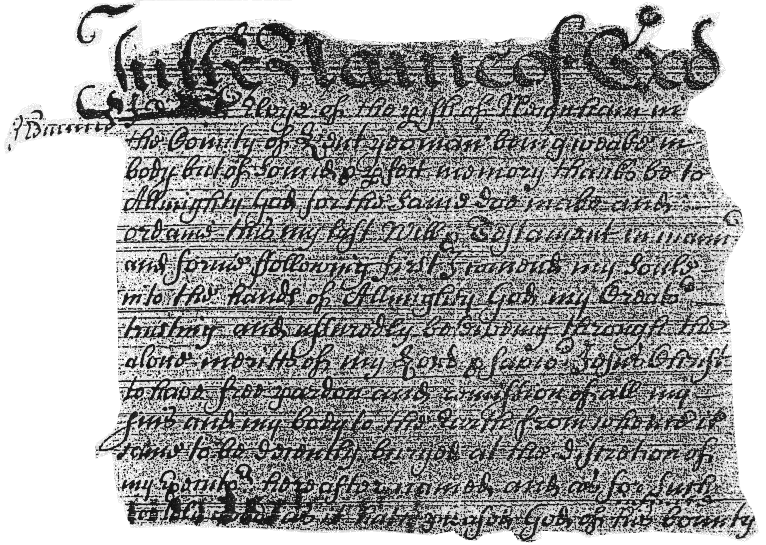 In the Name of God
Edmund
of the p[ar]ish of in
the County of Kent yeoman being weake in
body but of sound & p[er]fect memory thanks be to
Allmighty God for the same doe make and
ordaine this my last Will & Testament in mann
and forme following first I comend my soule
into the hands of Allmighty God my Creator
trusting and assuredly beleiving through the
alone meritts of my Lord & Savior Jesus Christ
to have free pardon and remission of all my
sins and my body to the Earth from whence it
came to be decently buryed at the discretion of
my Executor hereafter named and as for such
God of his bounty